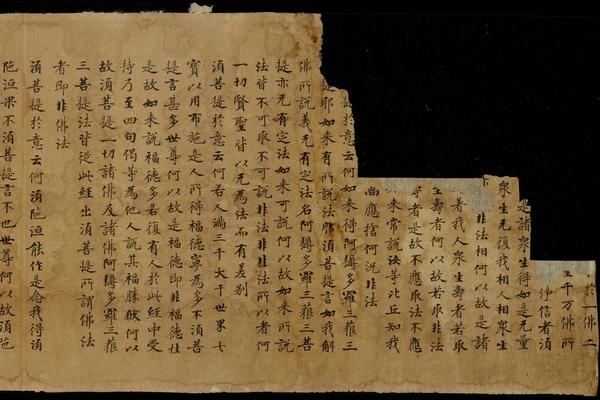 於一佛二
生千万佛所
淨信者須
是諸衆生得如是无量
衆生无復我相人相衆生
非法相何以故是諸
著我人衆生壽者若取
生壽者何以故若取非法
壽者是故不應取法不應
來常說汝等比丘知我
尚應捨何況非法
提於意云何如來得阿耨多羅三藐三
提耶如來有所說法耶須菩提言如我解
佛所說義无有定法名阿耨多羅三藐三菩
提亦无有定法如來可說何以故如來所說
法皆不可取不可說非法非非法所以者何
一切賢聖皆以无為法而有差別
須菩提於意云何若人滿三千大千世界七
寶以用布施是人所得福德寧為多不須菩
提言甚多世尊何以故是福德即非福德性
是故如來說福德多若復有人於此經中受
持乃至四句偈等為他人說其福勝彼何以
故須菩提一切諸佛及諸佛阿耨多羅三藐
三菩提法皆從此經出須菩提所謂佛法
者即非佛法
須菩提於意云何須陁洹能作是念我得須
陁洹果不須菩提言不也世尊何以故須陁